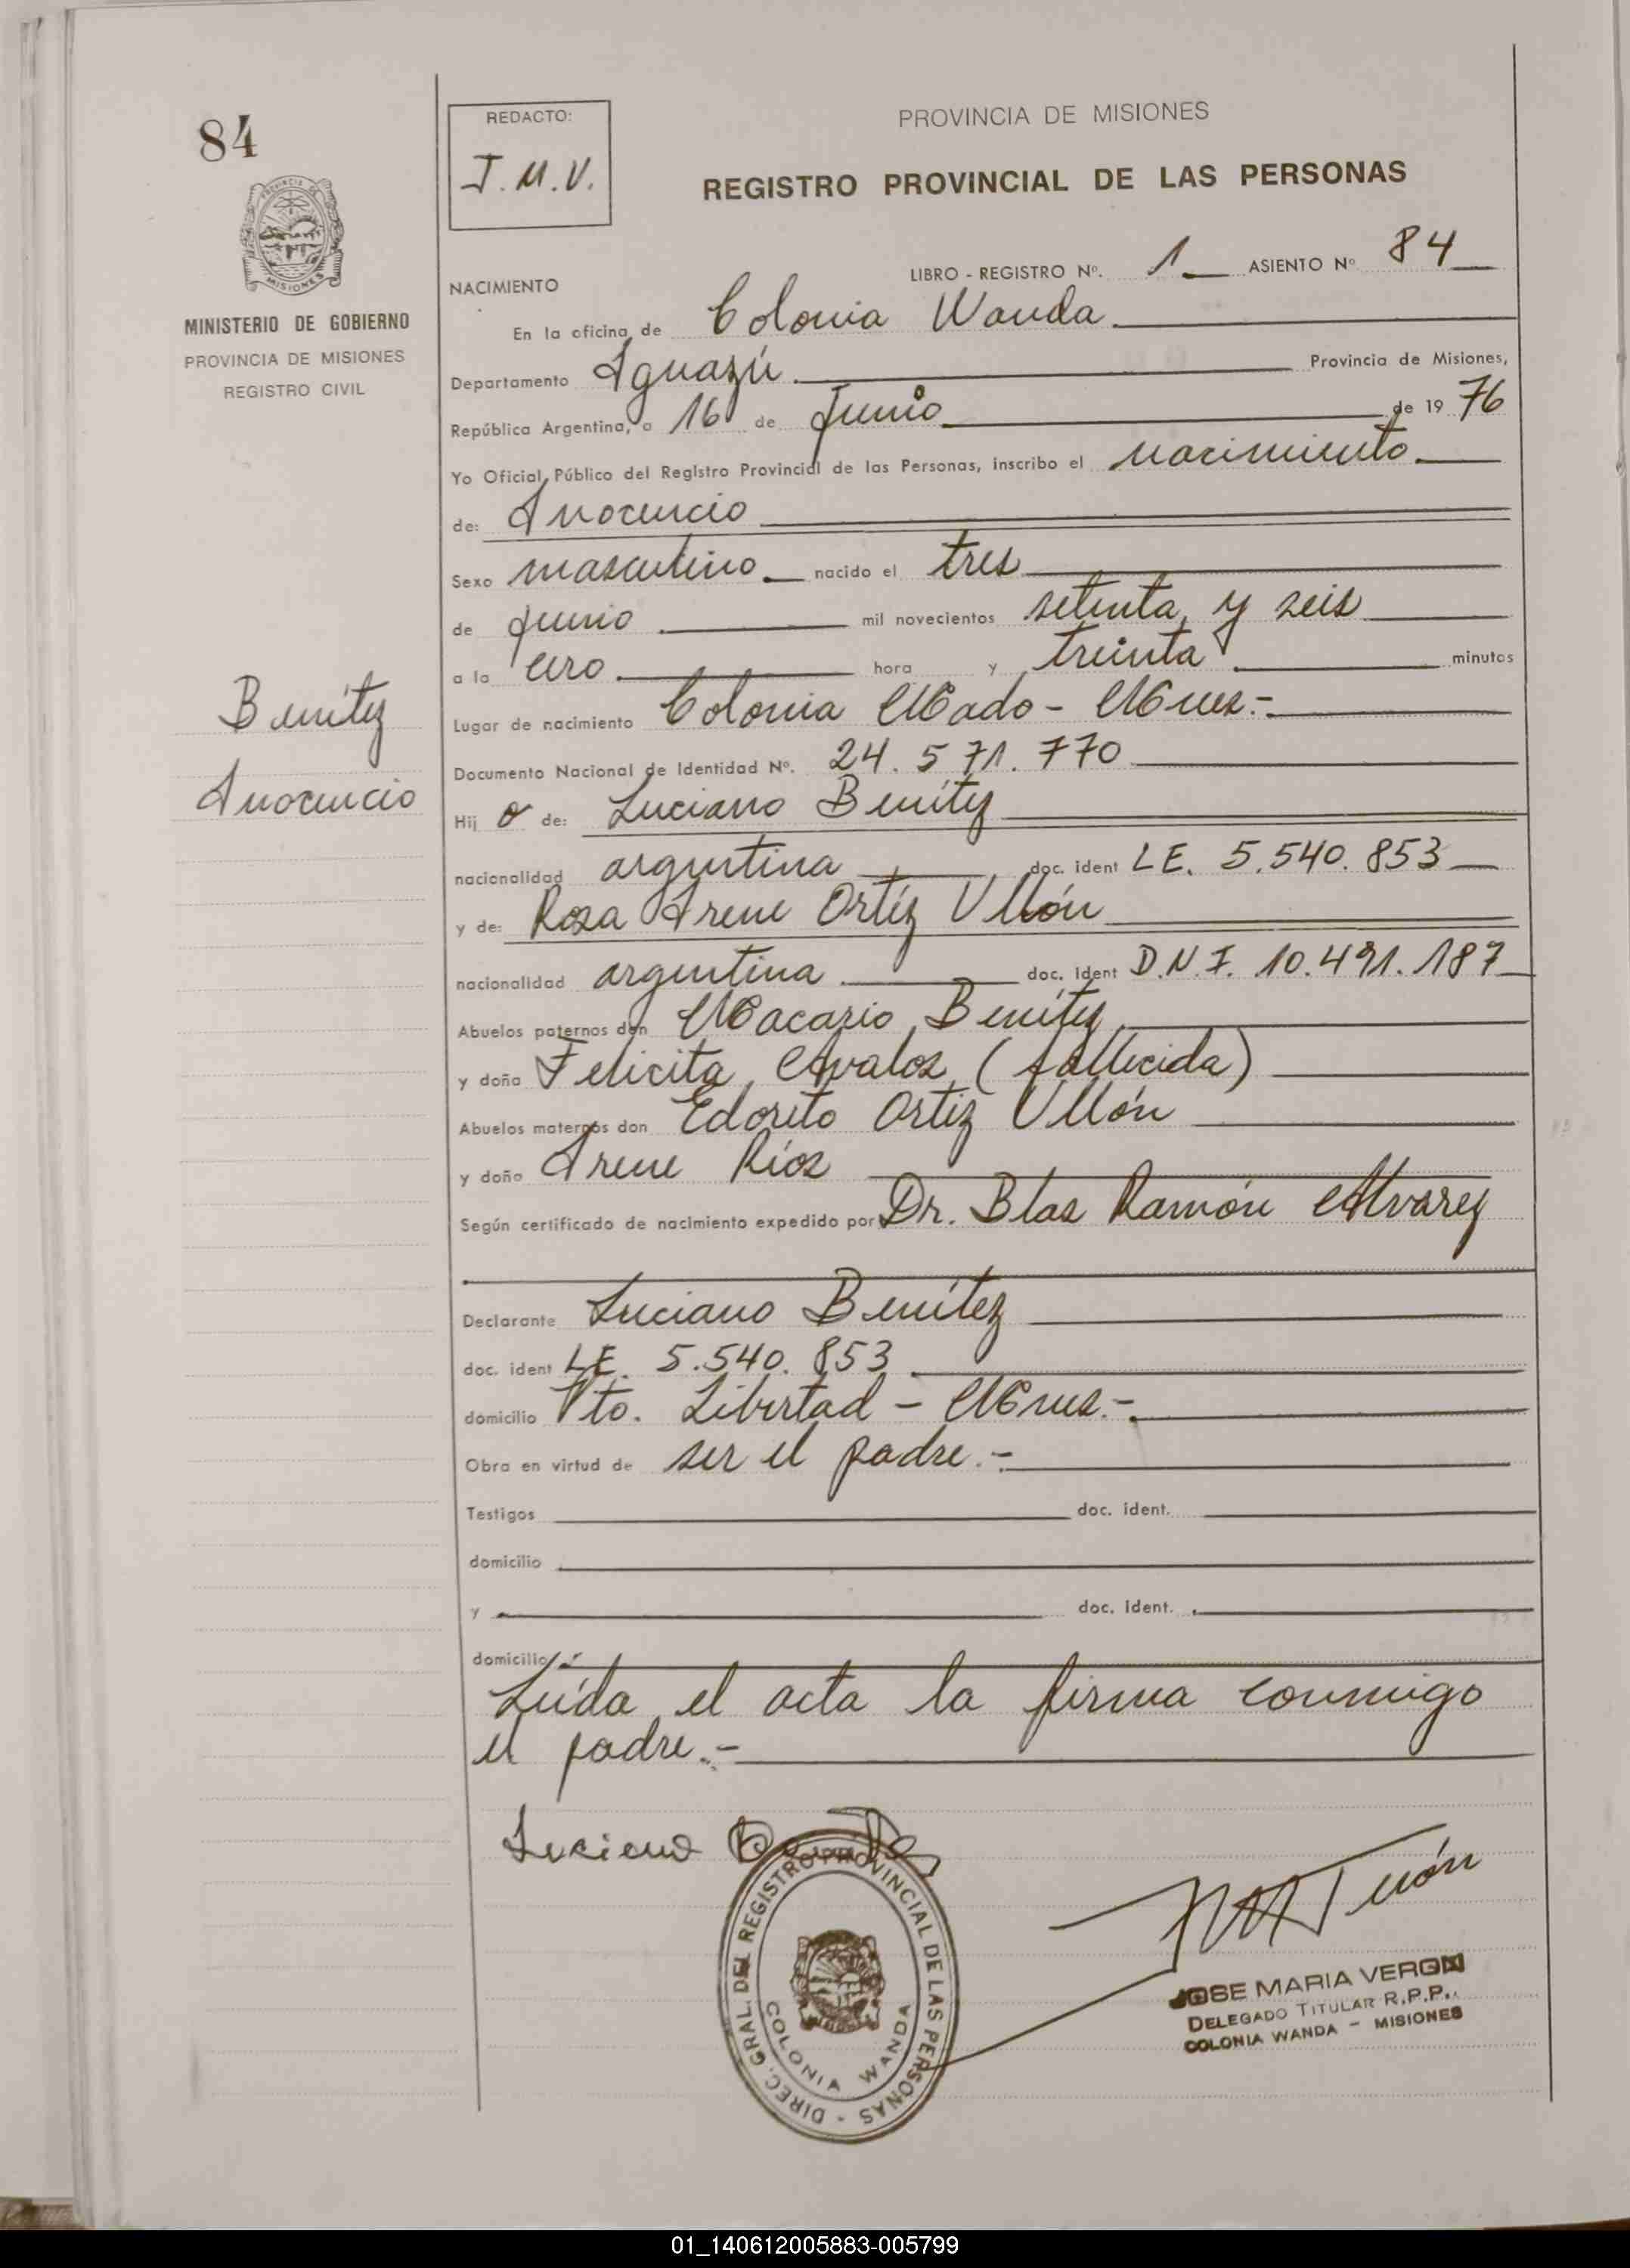 84
REDACTO:
J. M. V.
PROVINCIA DE MISIONES
REGISTRO PROVINCIAL DE LAS PERSONAS
PROVINCIA DE
MISIONES
MINISTERIO DE GOBIERNO
PROVINCIA DE MISIONES
REGISTRO CIVIL
NACIMIENTO
LIBRO - REGISTRO Nº. 1 ASIENTO Nº 84
En la oficina de Colonia Wanda
Departamento Iguazú Provincia de Misiones,
República Argentina, a 16 de Junio de 19 76
Yo Oficial Público del Registro Provincial de las Personas, inscribo el nacimiento
de: Inocencio
Sexo masculino nacido el tres
de junio mil novecientos setenta y seis
a la cero hora y treinta minutos
Benítez
Inocencio
Lugar de nacimiento Colonia Mado - Mnes.-
Documento Nacional de Identidad Nº. 24.571.770
Hij o de: Luciano Benítez
nacionalidad argentina doc. ident LE. 5.540.853
y de: Rosa Irene Ortíz Ullón
nacionalidad argentina doc. ident D.N.I. 10.491.187
Abuelos paternos don Macario Benítez
y doña Felicita Avalos (fallecida)
Abuelos maternos don Edorito Ortiz Ullón
y doña Irene Ríos
Según certificado de nacimiento expedido por Dr. Blas Ramón Alvarez
Declarante Luciano Benítez
doc. ident LE. 5.540.853
domicilio Pto. Libertad - Mnes.-
Obra en virtud de ser el padre.-
Testigos doc. ident.
domicilio
y doc. ident.
domicilio
Leída el acta la firma conmigo
el padre.-
Luciano
DIREC. GRAL. DEL REGISTRO PROVINCIAL DE LAS PERSONAS -
COLONIA WANDA
JOSE MARIA VERON
DELEGADO TITULAR R.P.P.
COLONIA WANDA - MISIONES
01_140612005883-005799